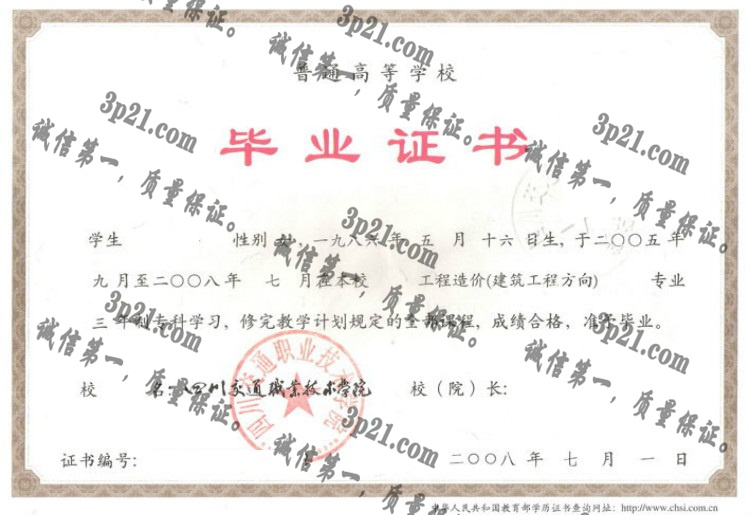 普通高等学校
毕业证书
学生 性别 女 一九八六年 五 月 十六日生，于二〇〇五年
九月至二〇〇八年 七 月在本校 工程造价(建筑工程方向) 专业
三 年制专科学习，修完教学计划规定的全部课程，成绩合格，准予毕业。
校 名：四川交通职业技术学院 校（院）长：
四川交通职业技术学院
证书编号： 二〇〇八年 七 月 一 日
中华人民共和国教育部学历证书查询网址：http://www.chsi.com.cn
3p21.com
诚信第一，质量保证。
3p21.com
诚信第一，质量保证。
3p21.com
诚信第一，质量保证。
3p21.com
诚信第一，质量保证。
3p21.com
诚信第一，质量保证。
3p21.com
诚信第一，质量保证。
3p21.com
诚信第一，质量保证。